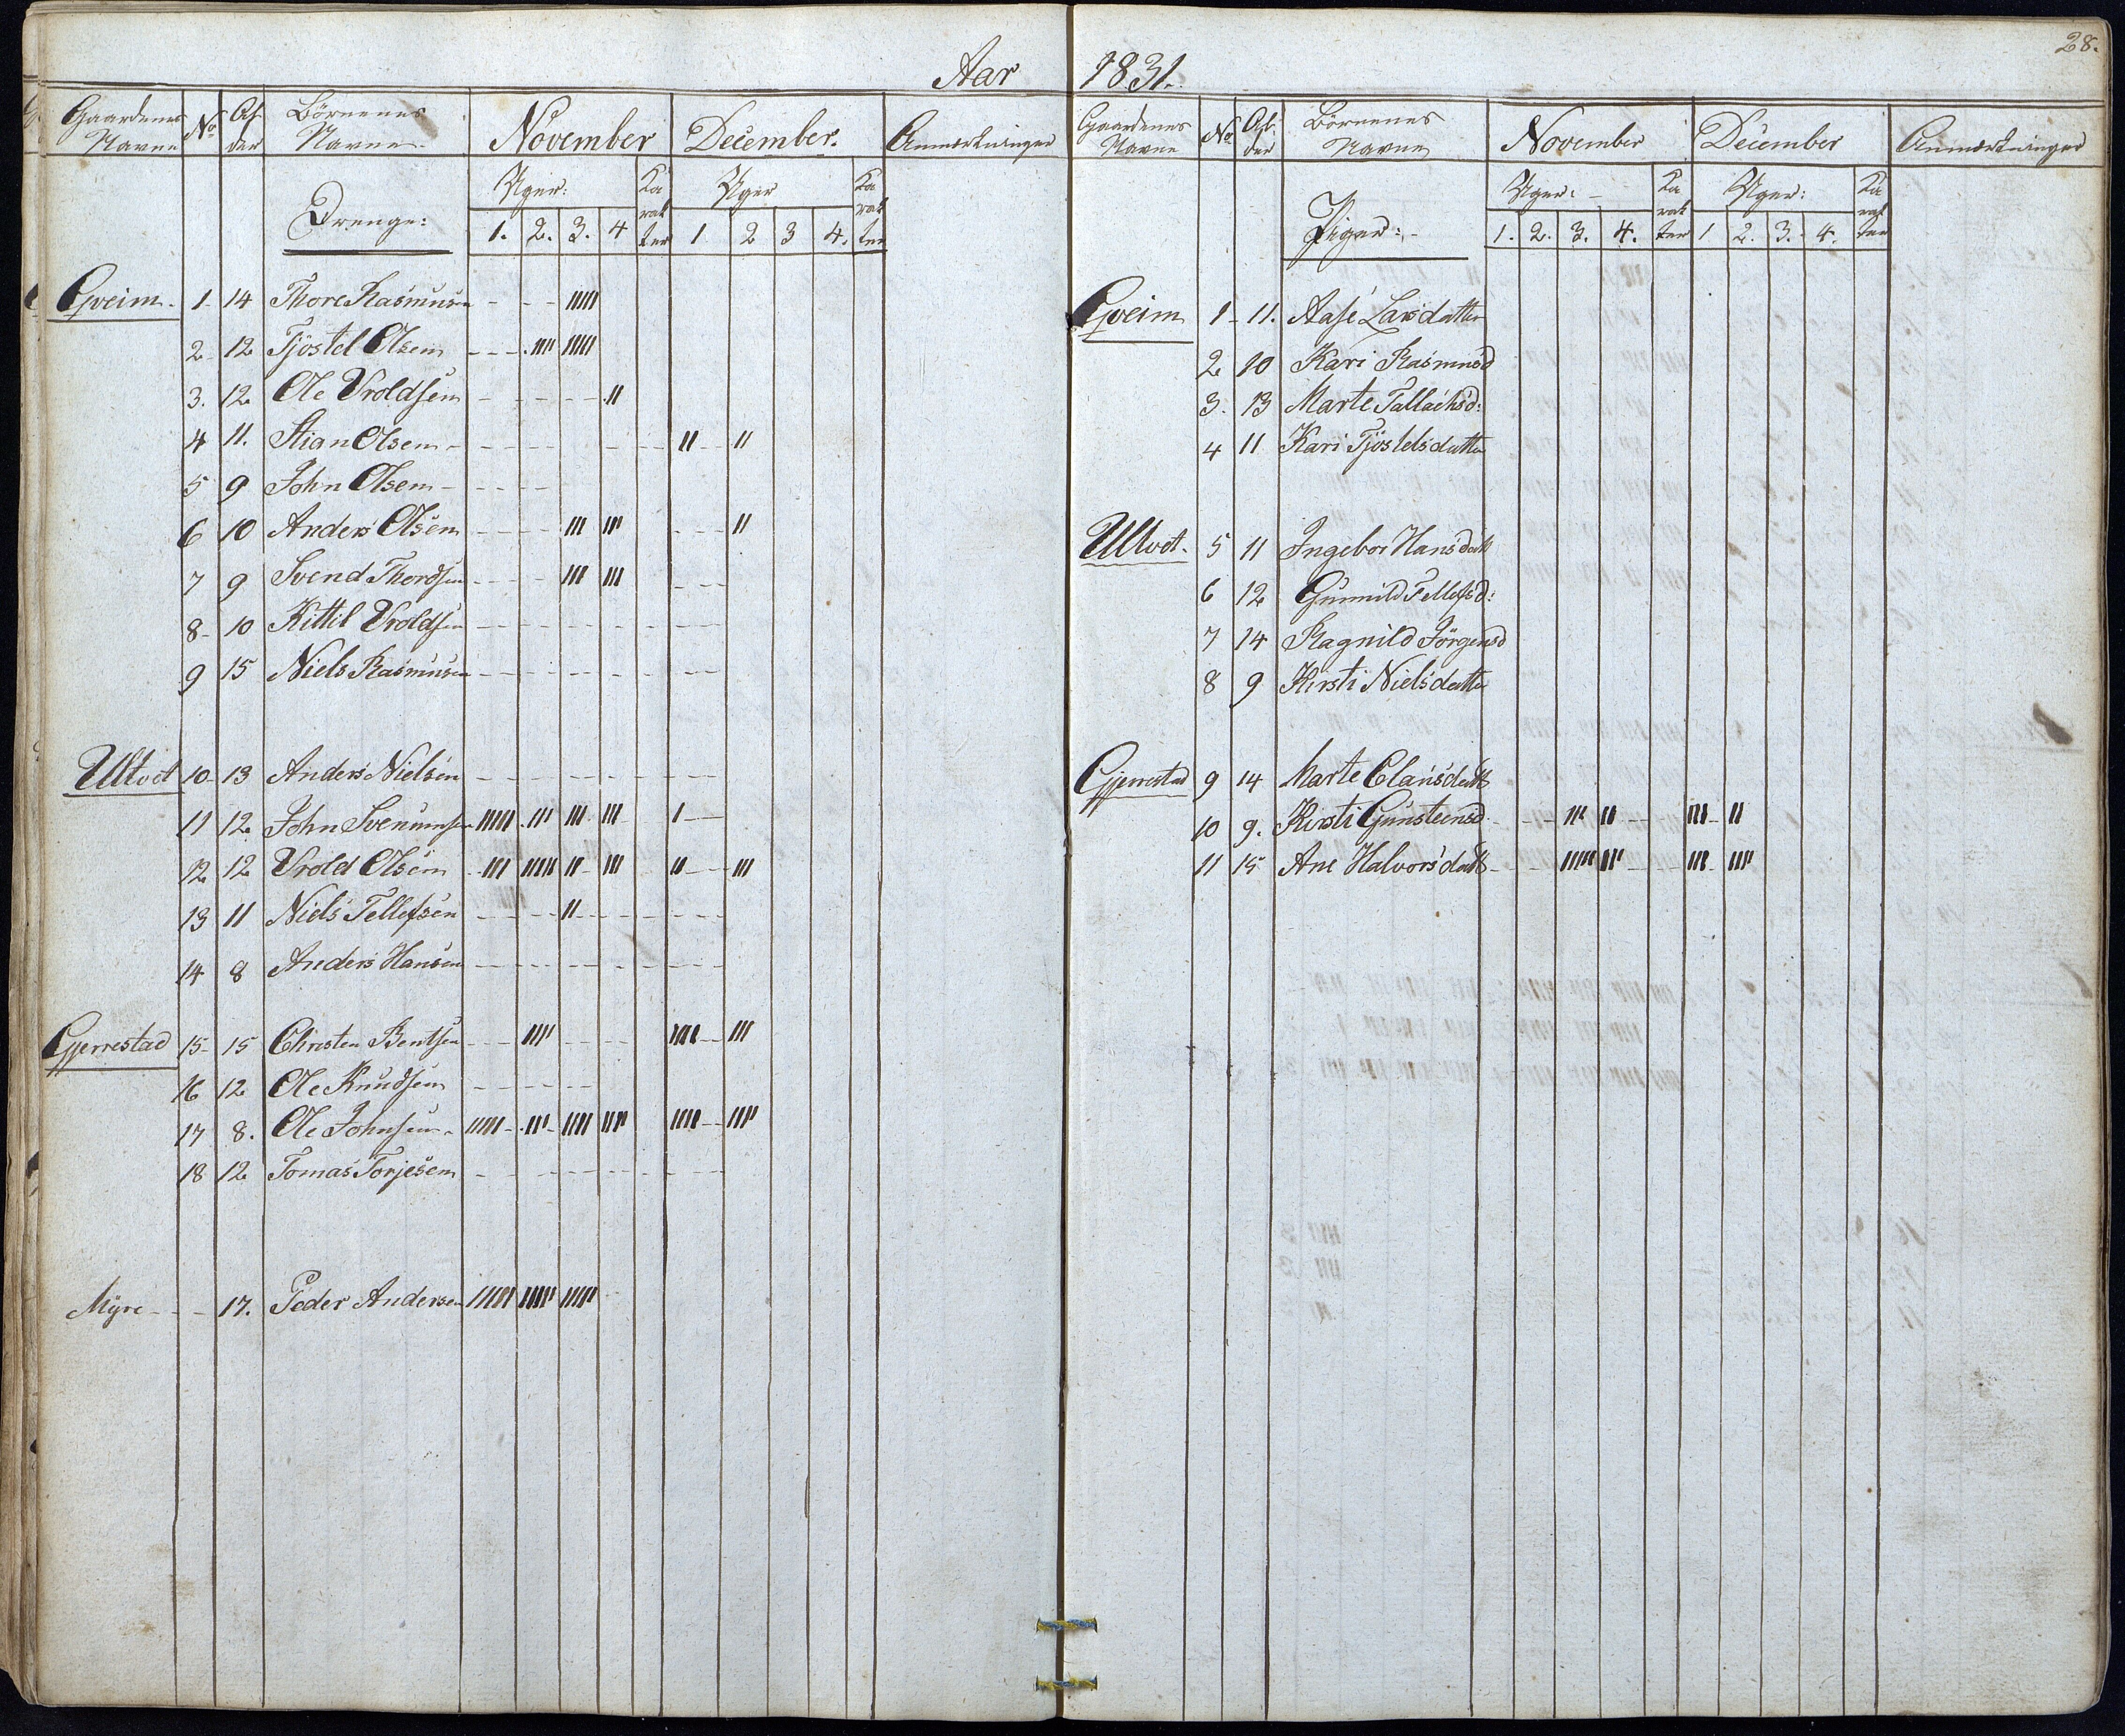 28.
Aar 1831.
Gaardenes Navne No Alder Börnenes Navne November December. Anmærkninger
Drenge: Uger: 1. 2. 3. 4 Karakter Uger 1 2 3 4. Karakter
Gveim. 1 14 Thore Rasmusen - - - IIIII
2 12 Tjøstel Olsem - - - IIII IIIII
3. 12 Ole Uroldsen - - - - - II
4 11. Stian Olsem - - - - - - - II - II
5 9 John Olsem - - - - -
6 10 Anders Olsem - - - - III III - - II
7 9 Svend Thordsen - - - - III III - -
8 10 Kittil Uroldsen - - - - - - - -
9 15 Niels Rasmusen - - - - - - - -
Ultvet 10 13 Anders Nielsen - - - - - - - -
11 12 John Svenumsen IIIII III III III I - -
12 12 Urold Olsem III IIIII II III II - - III
13 11 Niels Tellefsen - - - - II - - - - -
14 8 Anders Hansen - - - - - - - -
Gjerrestad 15 15 Christen Bentsen - - IIII - - - - IIII - III
16 12 Ole Knudsem - - - - -
17 8. Ole Johnsen IIIII III IIII IIII IIII - - IIII
18 12 Tomas Torjesem - - - - - - - -
Myre - - - 17. Peder Andersen IIIII IIIII IIIII
Gaardenes Navne No Alder Börnenes Navne November December Anmærkninger
Piger: Uger: 1. 2. 3. 4. Karakter Uger: 1 2. 3. 4. Karakter
Gveim 1 11. Aase Larsdatter
2 10 Kari Rasmusd
3. 13 Marte Tallachsd:
4 11 Kari Tjøstelsdatter
Ultvet. 5 11 Ingebor Hansdatt
6 12 Gunnild Tellefsd:
7 14 Ragnild Jörgensd
8 9 Kirsti Nielsdatter
Gjerrestad 9 14 Marte Clausdatt
10 9. Kirsti Gunsteensd. - - III II - - III - II
11 15 Ane Halvorsdatt - - - IIIII IIII - - III - IIII